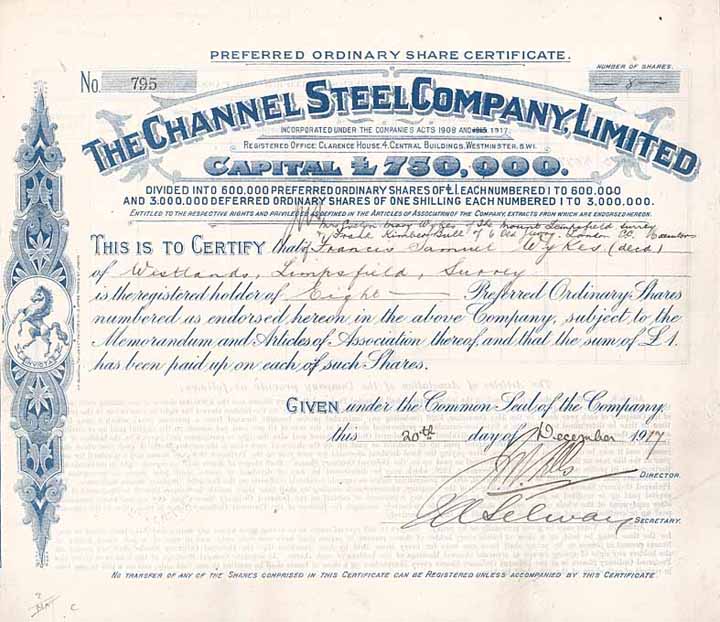 PREFERRED ORDINARY SHARE CERTIFICATE.
No. 795
NUMBER OF SHARES.
8
THE CHANNEL STEEL COMPANY, LIMITED
INCORPORATED UNDER THE COMPANIES ACTS 1908 AND 1917.
REGISTERED OFFICE: CLARENCE HOUSE, 4, CENTRAL BUILDINGS, WESTMINSTER, S.W.1.
CAPITAL £750,000.
DIVIDED INTO 600.000 PREFERRED ORDINARY SHARES OF £1. EACH NUMBERED 1 TO 600.000
AND 3.000.000 DEFERRED ORDINARY SHARES OF ONE SHILLING EACH NUMBERED 1 TO 3.000.000.
ENTITLED TO THE RESPECTIVE RIGHTS AND PRIVILEGES AS DEFINED IN THE ARTICLES OF ASSOCIATION OF THE COMPANY, EXTRACTS FROM WHICH ARE ENDORSED HEREON.
Wykes The Mount Limpsfield Surrey
& Kimber Bull of London
THIS IS TO CERTIFY that Francis Samuel Wykes (decd.)
of Westlands, Limpsfield, Surrey
is the registered holder of Eight Preferred Ordinary Shares
numbered as endorsed hereon in the above Company, subject to the
Memorandum and Articles of Association thereof, and that the sum of £1.
has been paid up on each of such Shares.
GIVEN under the Common Seal of the Company,
this 20th day of December 1917
DIRECTOR.
A Selway SECRETARY.
NO TRANSFER OF ANY OF THE SHARES COMPRISED IN THIS CERTIFICATE CAN BE REGISTERED UNLESS ACCOMPANIED BY THIS CERTIFICATE